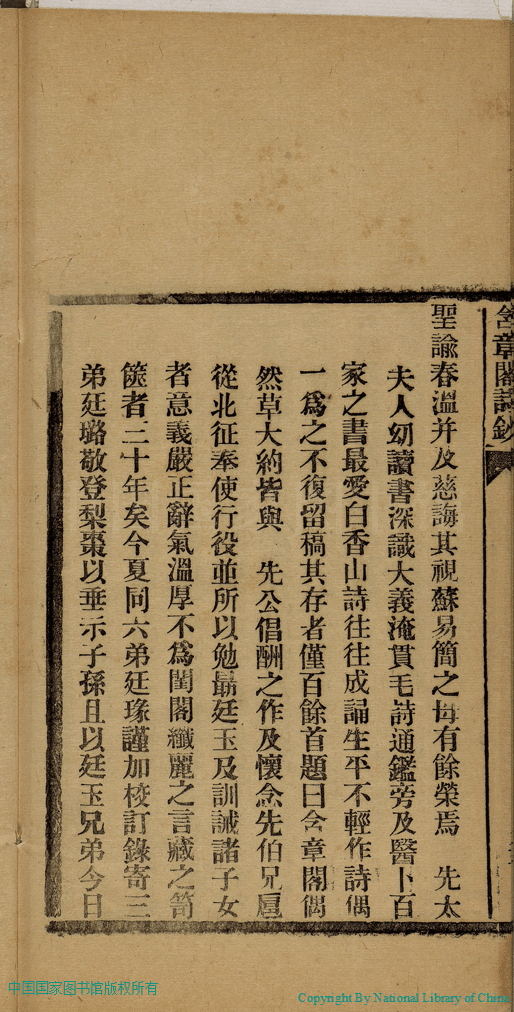 含章閣詩鈔
聖諭春溫并及慈誨其視蘇易簡之母有餘榮焉　先太
夫人幼讀書深識大義淹貫毛詩通鑑旁及醫卜百
家之書最愛白香山詩往往成誦生平不輕作詩偶
一爲之不復留稿其存者僅百餘首題曰含章閣偶
然草大約皆與　先公倡酬之作及懷念先伯兄扈
從北征奉使行役並所以勉勗廷玉及訓誡諸子女
者意義嚴正辭氣溫厚不爲閨閣纖麗之言藏之笥
篋者三十年矣今夏同六弟廷瑑謹加校訂錄寄三
弟廷璐敬登梨棗以垂示子孫且以廷玉兄弟今日
中国国家图书馆版权所有
Copyright By National Library of China